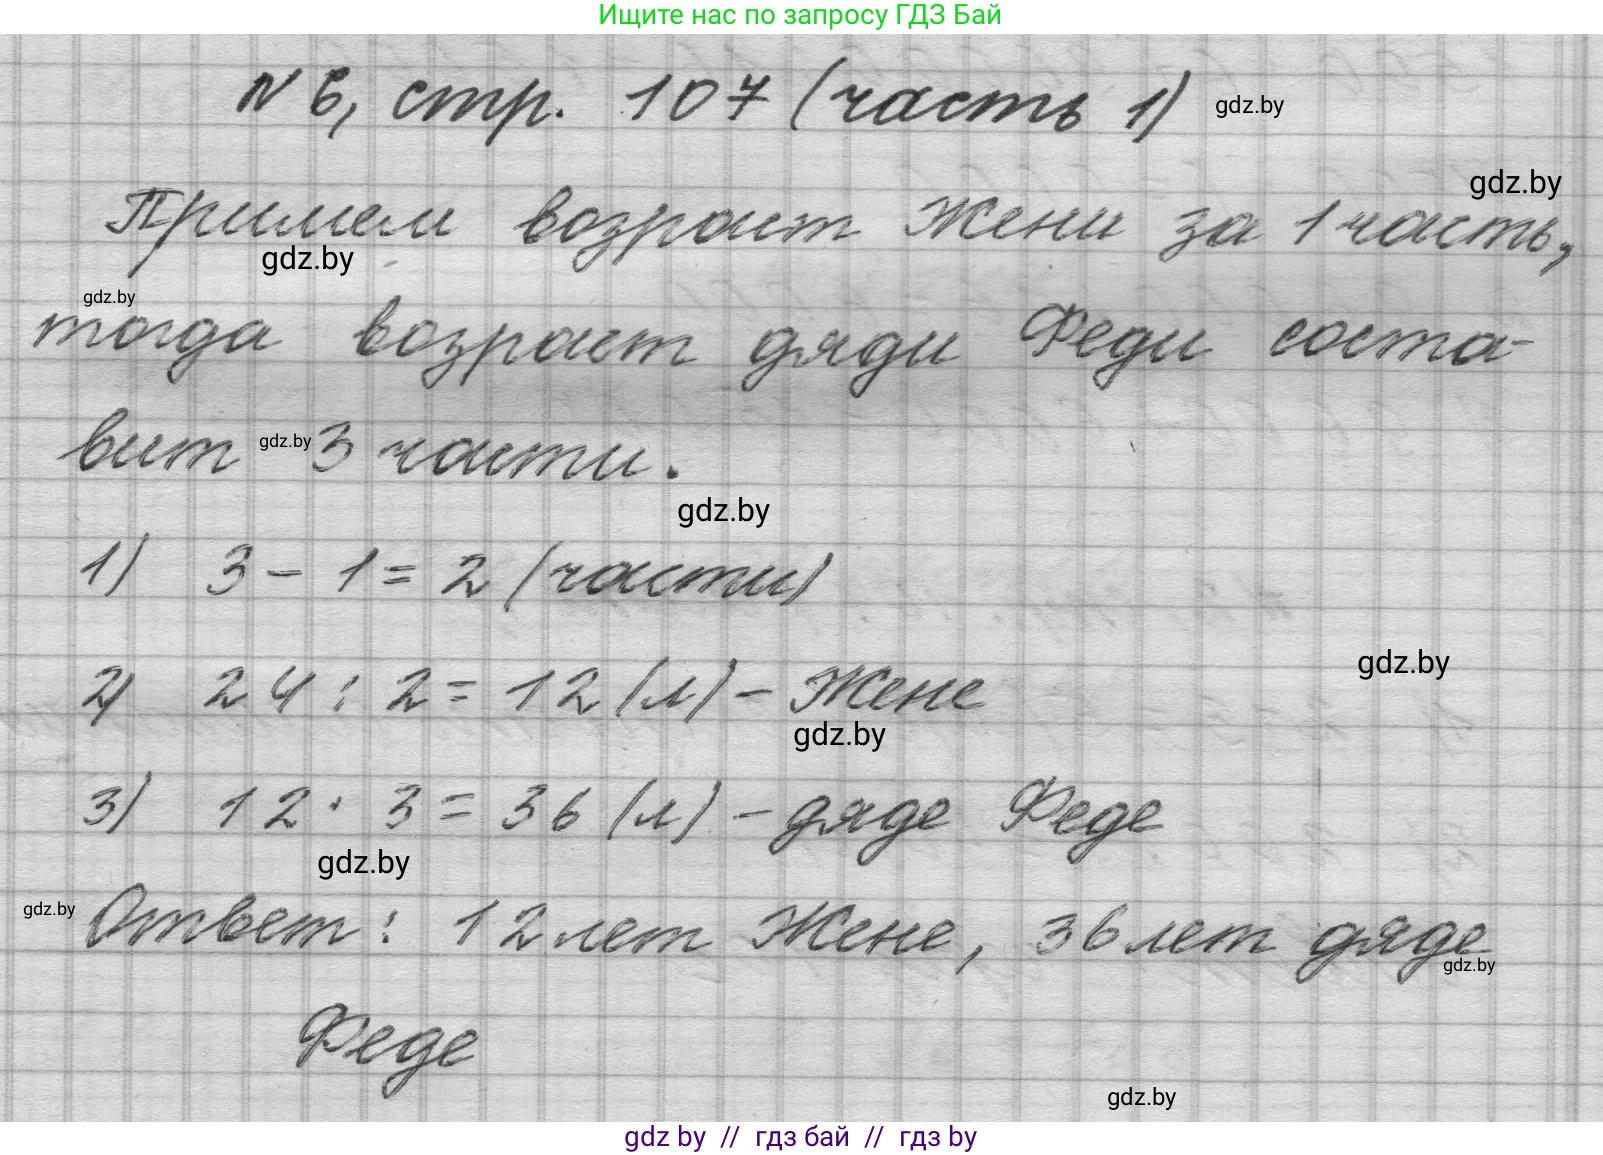 Ищите нас по запросу ГДЗ Бай
№ 6, стр. 107 (часть 1) gdz.by
gdz.by
Примем возраст Жени за 1 часть,
gdz.by
gdz.by
тогда возраст дяди Феди соста-
вит gdz.by 3 части.
gdz.by
1) 3 - 1 = 2 (части)
gdz.by
2) 24 : 2 = 12 (л) - Жене
gdz.by
3) 12 · 3 = 36 (л) - дяде Феде
gdz.by
gdz.by Ответ: 12 лет Жене, 36 лет дяде
gdz.by
Феде
gdz.by
gdz by // гдз бай // гдз by